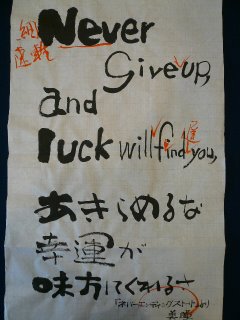 Never
Give up,
and
luck will find you,
あきらめるな
幸運が
味方してくれるさ
「ネバーエンディングストーリー」より